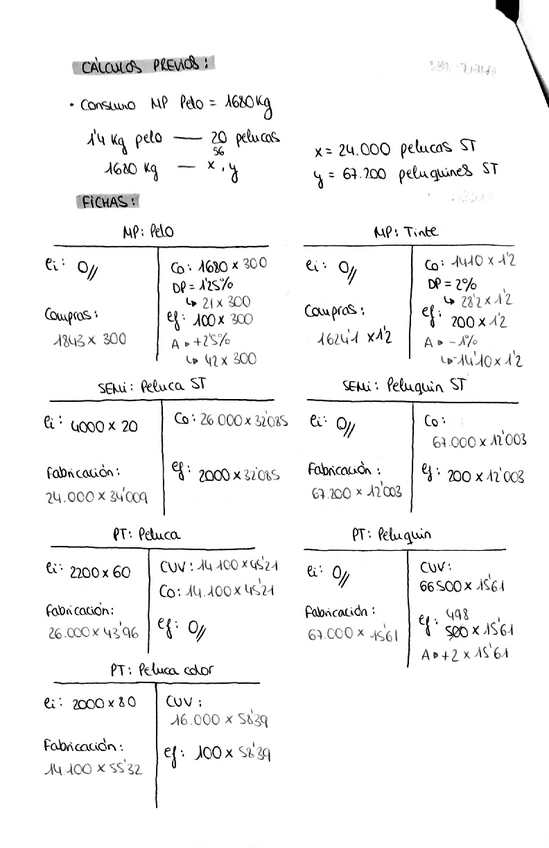 CÁLCULOS PREVIOS:
• Consumo MP Pelo = 1680Kg
1'4 Kg pelo — 20 pelucas
56
1680 Kg — x, y
x = 24.000 pelucas ST
y = 67.200 peluquines ST
FICHAS:
MP: Pelo
ei: 0//
Compras:
1843 x 300
Co: 1680 x 300
DP = 1'25%
↳ 21 x 300
ef: 100 x 300
A → +2'5%
↳ 42 x 300
MP: Tinte
ei: 0//
Compras:
1624'1 x 1'2
Co: 1410 x 1'2
DP = 2%
↳ 28'2 x 1'2
ef: 200 x 1'2
A → -1%
↳ -14'10 x 1'2
SEMI: Peluca ST
ei: 4000 x 20
Fabricación:
24.000 x 34'009
Co: 26.000 x 32'085
ef: 2000 x 32'085
SEMI: Peluquin ST
ei: 0//
Fabricación:
67.200 x 12'003
Co:
67.000 x 12'003
ef: 200 x 12'003
PT: Peluca
ei: 2200 x 60
Fabricación:
26.000 x 43'96
CUV: 14.100 x 45'21
Co: 14.100 x 45'21
ef: 0//
PT: Peluquin
ei: 0//
Fabricación:
67.000 x 15'61
CUV:
66500 x 15'61
ef: 498
500 x 15'61
A → +2 x 15'61
PT: Peluca color
ei: 2000 x 80
Fabricación:
14.100 x 55'32
CUV:
16.000 x 58'39
ef: 100 x 58'39